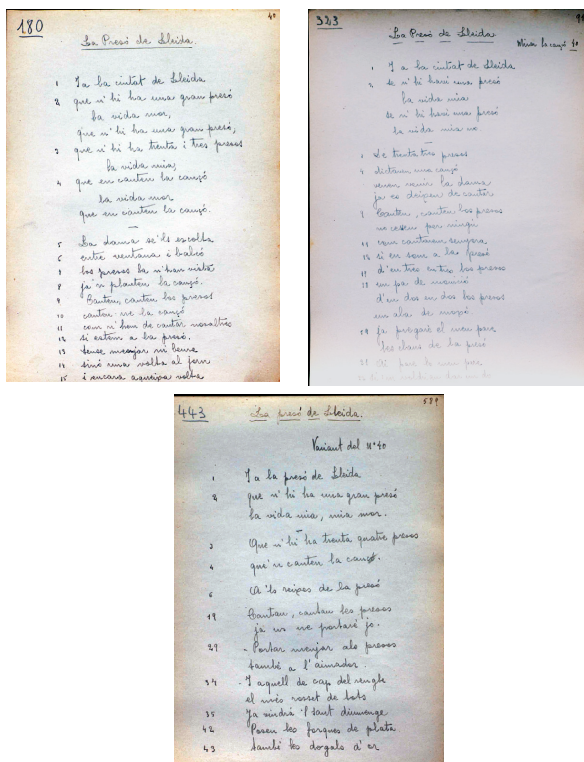 180
40
La Presó de Lleida
1 I a la ciutat de Lleida
2 que n'hi ha una gran presó
la vida mor,
que n'hi ha una gran presó,
3 que n'hi ha trenta i tres presos
la vida mia,
4 que en canten la cançó
la vida mor
que en canten la cançó.
5 La dama se'ls escolta
6 entre ventana i balcó
7 los presos la n'han vista
8 ja n planten la cançó.
9 Canten, canten los presos
10 canten-ne la cançó
11 com n'hem de cantar nosaltres
12 si estem a la presó.
13 sense menjar ni beure
14 sinó una volta al jorn
15 i encara aqueixa volta
323
La Presó de Lleida
Mira la cançó 40
1 I a la ciutat de Lleida
2 se n'hi havi una presó
la vida mia
se n'hi havi una presó
la vida mia
3 De trenta tres presos
4 una cançó
la dama
ja es deixen de cantar
Canten, canten los presos
no cessen por ningú
com cantarem senyora
12 si en som a la presó
d'en tres en tres los presos
d'en dos en dos los presos
19 ja pregaré el meu pare
les claus de la presó
443
589
La presó de Lleida.
Variant del Nº 40
1 I a la presó de Lleida
2 que n'hi ha una gran presó
la vida mia, mia mor.
3 Que n'hi ha trenta quatre presos
4 que'n canten la cançó.
A 'ls reixes de la presó
19 Cantau, cantau les presos
ja us ne portaré jo.
29 - Portar menjar als presos
també a l'aimador.
34 - I aquell de cap del rengle
el més rosset de tots
35 Ja vindrà 'l sant diumenge
42 Posen les forques de plata
43 També les dogals d'or